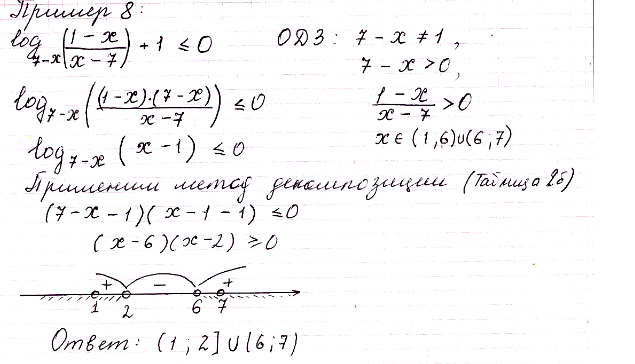 Пример 8:
log₇₋ₓ((1-x)/(x-7)) + 1 ≤ 0
ОДЗ: 7-x ≠ 1,
7-x > 0,
(1-x)/(x-7) > 0
x ∈ (1,6)∪(6;7)
log₇₋ₓ((1-x)·(7-x)/(x-7)) ≤ 0
log₇₋ₓ(x-1) ≤ 0
Применим метод декомпозиции (Таблица 2б)
(7-x-1)(x-1-1) ≤ 0
(x-6)(x-2) ≥ 0
+ - +
1 2 6 7
Ответ: (1;2]∪(6;7)